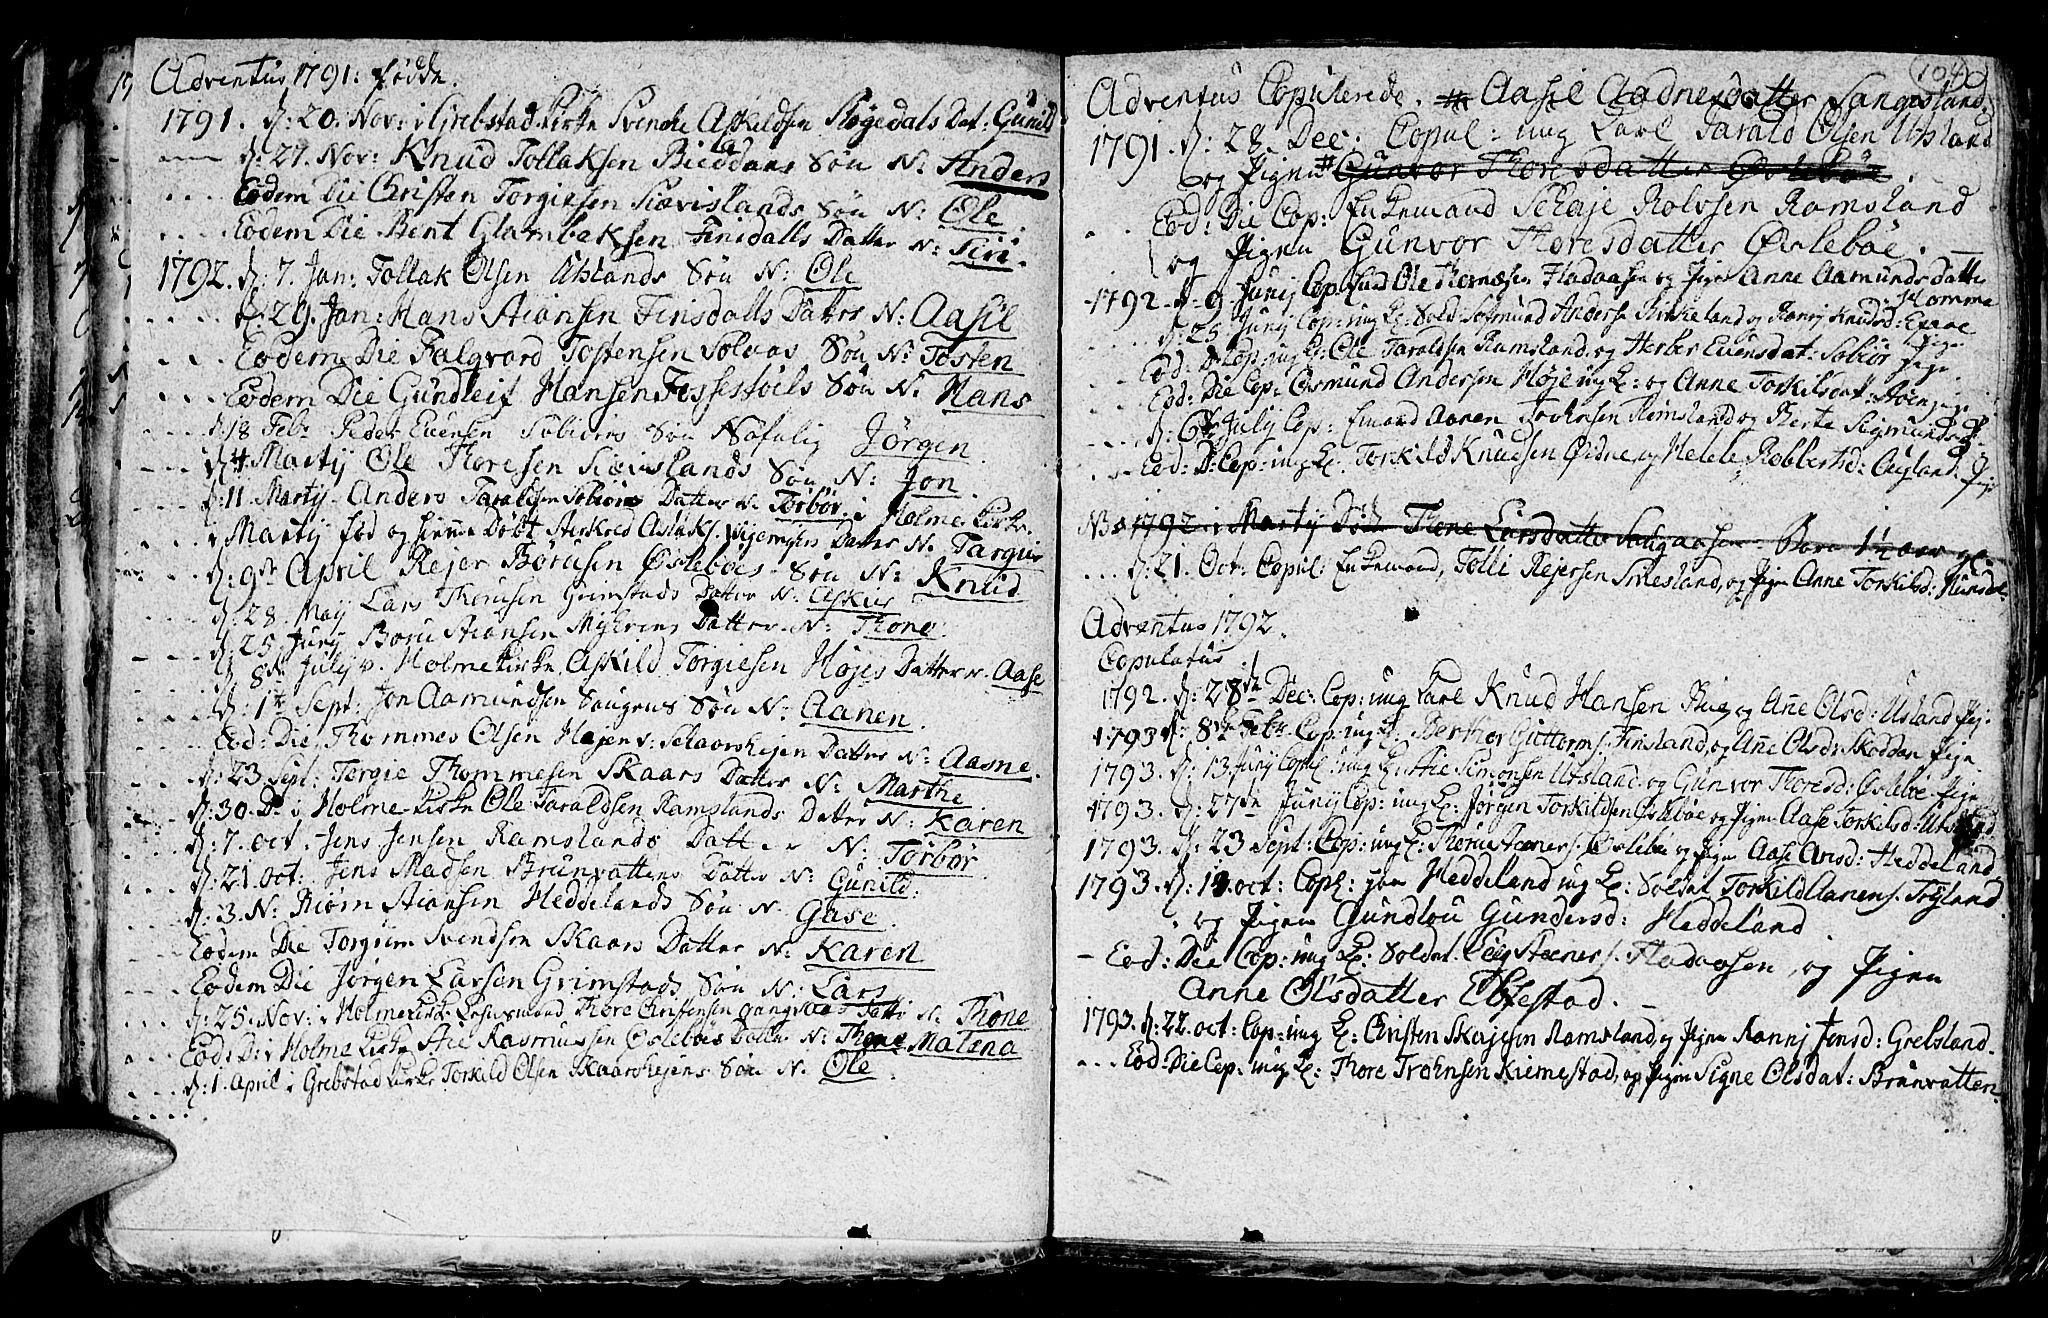 Adventus 1791: Fødde.
1791. d: 20. Nov: i Grebstad Kirke Svenche Askildsen Røgedals Dat: Gunild
d: 27. Nov: Knud Tollaksen Bieldans Søn N: Anders
Eodem Die Christen Torgiesen Siævislands Søn N: Ole
Eodem Die Bent Glambeksen Finsdalls Datter N: Siri.
1792. d: 7. Jan: Tollak Olsen Utslands Søn N: Ole
d: 29. Jan: Hans Stiansen Finsdalls Datter N: Aasil
Eodem Die Falqvard Tostensen Solaas Søn N: Tosten
Eodem Die Gundleif Hansen Fossestøels Søn N: Hans
d: 18 Febr Peder Evensen Søbiørs Søn Nøfalig Jørgen.
d: 4 Martij Ole Thoresen Siævislands Søn N: Jon.
d: 11. Martij. Anders Taraldsen Sobiørs Datter N: Torbør. i Holme Kirke.
Martij fød og hiemme Døbt Aslaks. Datter N: Targier
d: 9de April Rejer Børusen Øsleboes Søn N: Knud
d: 28. Maij Lars Thorusen Grimstads Datter N:
d: 25 Junij Boru Stiansen Myhrens Datter N: Thone.
d: 8de Julij v. Holme Kirke Askild Torgiesen Højes Datter N: Aase
d: 1te Sept: Jon Aamundsen Saugens Søn N: Aanen.
Eod: Die, Thommes Olsen Hejen v: Skaarshejen Datter N: Aasne.
d: 23 Sept: Torgie Thommesen Skaars Datter N: Marthe.
d: 30. Do i Holme Kirke Ole Taraldsen Ramslands Datter N: Karen
d: 7. oct. Jens Jensen Ramslands Datter N: Torbør
d: 21. oct: Jens Madsen Brunvattens Datter N: Gunild.
d: 3. N: Biørn Stiansen Heddelands Søn N: Gase.
Eodem Die Torgium Svendsen Skaars Datter N: Karen
Eodem Die Jørgen Larsen Grimstads Søn N: Lars
d: 25. Nov: i Holme Kirke Thore Christensen Datter N: Thone
Eod: D: i Holme Kirke Stie Rasmussen Øsleboes Datter N: Thone Malena
d: 1. April i Grebstad Kirke Torkild Olsen Skaarshejens Søn N. Ole.
104
Adventus Copulerede. # Aasil Aadnesdatter Langesland.
1791. d: 28. Dec: Copul: ung Karl Tarald Olsen Utsland
og Pigen # Gunvor Thoresdatter Øsleboe.
Eod: Die Cop: Enkemand Schaje Rolvsen Ramsland
og Pigen Gunvor Thoresdatter Øsleboe.
1792. d. 9. Junij Cop: Ole Thornæsen Fladaasen og Pigen Anne Aamundsdatter Holomme
d: 25 Junij Cop: ung K: Sold: Sigmund Anders. Kirkeland og Ranij Knudsd: Pige
Eod: D: Cop: ung K: Ole Taraldsen Ramsland, og Herber Evensdat: Sobiør Pige.
Eod: Die Cop: Osmund Andersen Høje ung K: og Anne Torkildsdat: Pige
d: 6te July Cop: Enmand Aanen Ramsland og Berte Sigmundsd:
Eod: D: Cop: ung K: Torkild Knudsen Øidne, og Helele Robbertsd: Augland Pige
NB 1792 i Martij Døde Thone Larsdatter Saugaasen
d: 21. Oct: Copul: Enkemand, Tolli Rejersen Smesland, og Pigen Anne Torkilsd: Hunsdal
Adventus 1792.
Copulatus.
1792. d: 28de Dec: Cop: ung Karl Knud Hansen Rue, og Añe Olsd: Usland Pij:
1793 d: 8de Febr: Cop: ung K: Berthor Guttorms. Finsland, og Añe Olsd: Skoddan Pige
1793. d: 13. Junij Copul: ung K: Stie Simonsen Utsland, og Gunvor Thoresd: Øsleboe Pige
1793. d: 27de Junij Cop: ung K: Jørgen Torkildsen Øsleboe og Pigen Aase Torkilsd: Utsland
1793. d: 23 Sept: Cop: ung K: Thorus Steeners. Øsleboe og Pigen Aase Arisd: Heddeland.
1793. d: 13. oct: Copl: paa Heddeland ung K: Soldat Torkild Aanens. Trygland.
og Pigen Gundlou Gundersd: Heddeland
Eod: Die Cop: ung K: Soldat Steeners. Fladaasen, og Pigen
Anne Olsdatter Ebbestad.
1793. d: 22. oct: Cop: ung K: Christen Skajesen Ramsland, og Pigen Rannj Jensd: Grebsland.
Eod: Die Cop: ung K: Thore Trohnsen Kiemestad, og Pigen Signe Olsdat: Brunvatten.